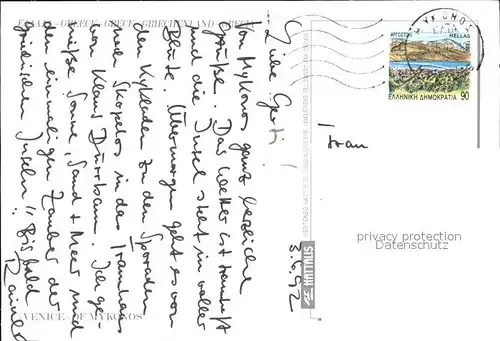 Liebe Gerti!
Von Mykonos ganz herzliche
Grüße. Das Wetter ist traumhaft
und die Insel steht in voller
Blüte. Übermorgen geht es von
den Kykladen zu den Sporaden
nach Skopelos in das Traumhaus
von Klaus Dürrbaum. Ich ge-
nieße Sonne, Sand + Meer und
den einmaligen Zauber der
griechischen Inseln". Bis bald
Rainer
3.6.92
Frau
ΜΥΚΟΝΟΣ
HELLAS
ΕΛΛΗΝΙΚΗ ΔΗΜΟΚΡΑΤΙΑ 90
privacy protection
Datenschutz
HAITALIS
VENICE - OF MYKONOS
GREECE - GRECE - GRIECHENLAND